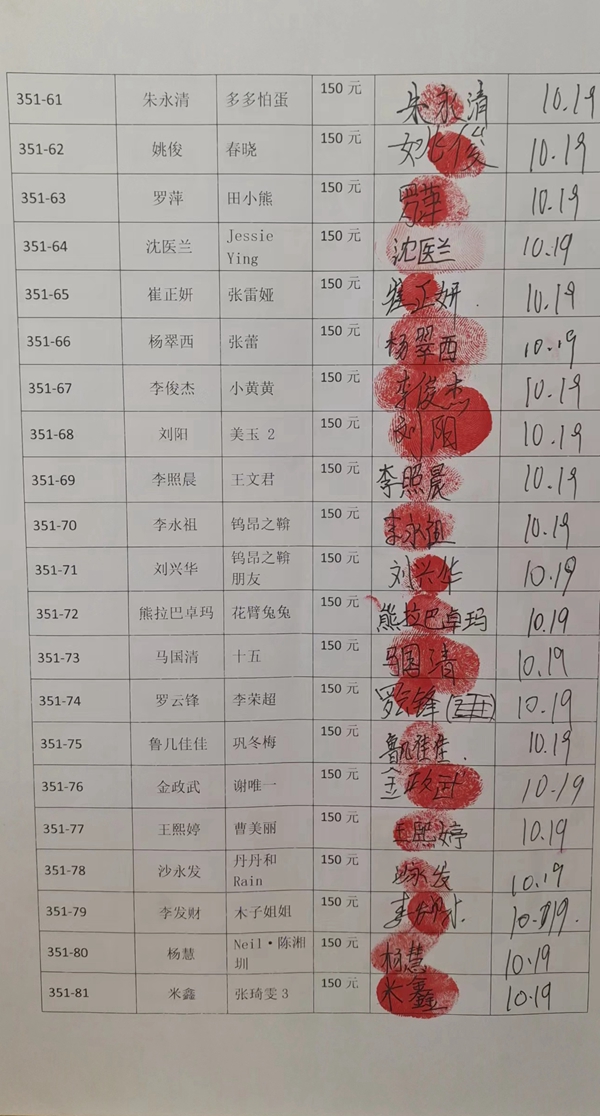 351-61 朱永清 多多怕蛋 150 元 朱永清 10.19
351-62 姚俊 春晓 150 元 姚俊 10.19
351-63 罗萍 田小熊 150 元 罗萍 10.19
351-64 沈医兰 Jessie 150 元 沈医兰 10.19
Ying
351-65 崔正妍 张雷娅 150 元 崔正妍. 10.19
351-66 杨翠西 张蕾 150 元 杨翠西 10.19
351-67 李俊杰 小黄黄 150 元 李俊杰 10.19
351-68 刘阳 美玉 2 150 元 刘阳 10.19
351-69 李照晨 王文君 150 元 李照晨 10.19
351-70 李永祖 钨昂之鞥 150 元 李永祖 10.19
351-71 刘兴华 钨昂之鞥 150 元 刘兴华 10.19
朋友
351-72 熊拉巴卓玛 花臂兔兔 150 元 熊拉巴卓玛 10.19
351-73 马国清 十五 150 元 马国清 10.19
351-74 罗云锋 李荣超 150 元 罗云锋 10.19
351-75 鲁几佳佳 巩冬梅 150 元 鲁几佳佳. 10.19
351-76 金政武 谢唯一 150 元 金政武 10.19
351-77 王熙婷 曹美丽 150 元 王熙婷 10.19
351-78 沙永发 丹丹和 150 元 沙永发 10.19
Rain
351-79 李发财 木子姐姐 150 元 李发财
351-80 杨慧 Neil·陈湘 150 元 杨慧 10.19
圳
351-81 米鑫 张琦雯 3 150 元 米鑫 10.19